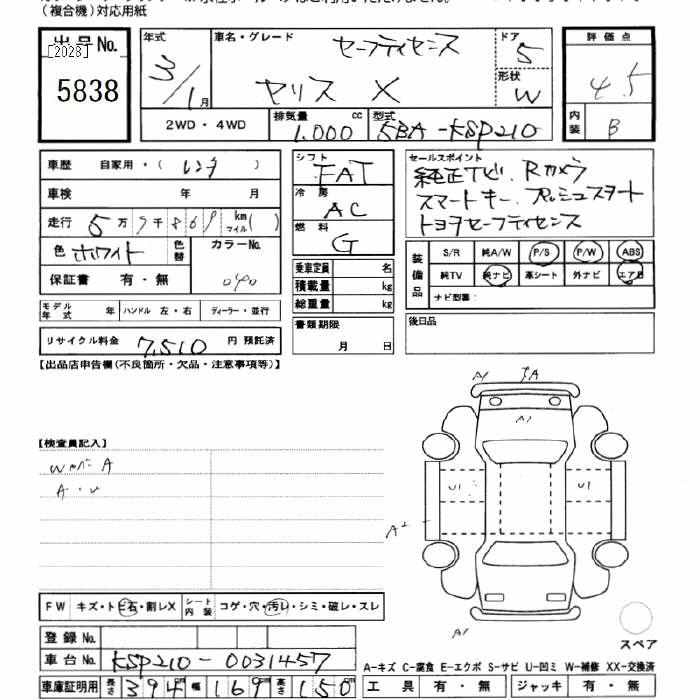 (複合機)対応用紙
出品No.
[2028]
5838
年式
3/1月
車名・グレード
セーフティセンス
ヤリス X
ドア
5
形状
W
評価点
4.5
内装
B
2WD・4WD
排気量
1,000 cc
型式
5BA-KSP210
車歴 自家用・(レンタ)
車検 年 月
走行 5万9千869 km マイル( )
色 ホワイト 色替
カラーNo.
040
保証書 有・無
モデル年式 年 ハンドル 左・右 ディーラー・並行
リサイクル料金 7,510 円 預託済
シフト
FAT
冷房
AC
燃料
G
乗車定員 名
積載量 kg
総重量 kg
書類期限
月 日
セールスポイント
純正ナビ、Rカメラ
スマートキー、プッシュスタート
トヨタセーフティセンス
装備品
S/R 純A/W P/S P/W ABS
純TV 純ナビ 革シート 外ナビ エアB
ナビ型番:
後日品
【出品店申告欄(不良箇所・欠品・注意事項等)】
【検査員記入】
Wカバー A
A・U
A1
A
A1
U1
U1
A2
A1
スペア
FW キズ・トビ石・割レX シート内装 コゲ・穴・汚レ・シミ・破レ・スレ
登録No.
車台No. KSP210-0031457
車庫証明用 長さ 394cm 幅 169cm 高さ 150cm
A-キズ C-腐食 E-エクボ S-サビ U-凹ミ W-補修 XX-交換済
工具 有・無 ジャッキ 有・無